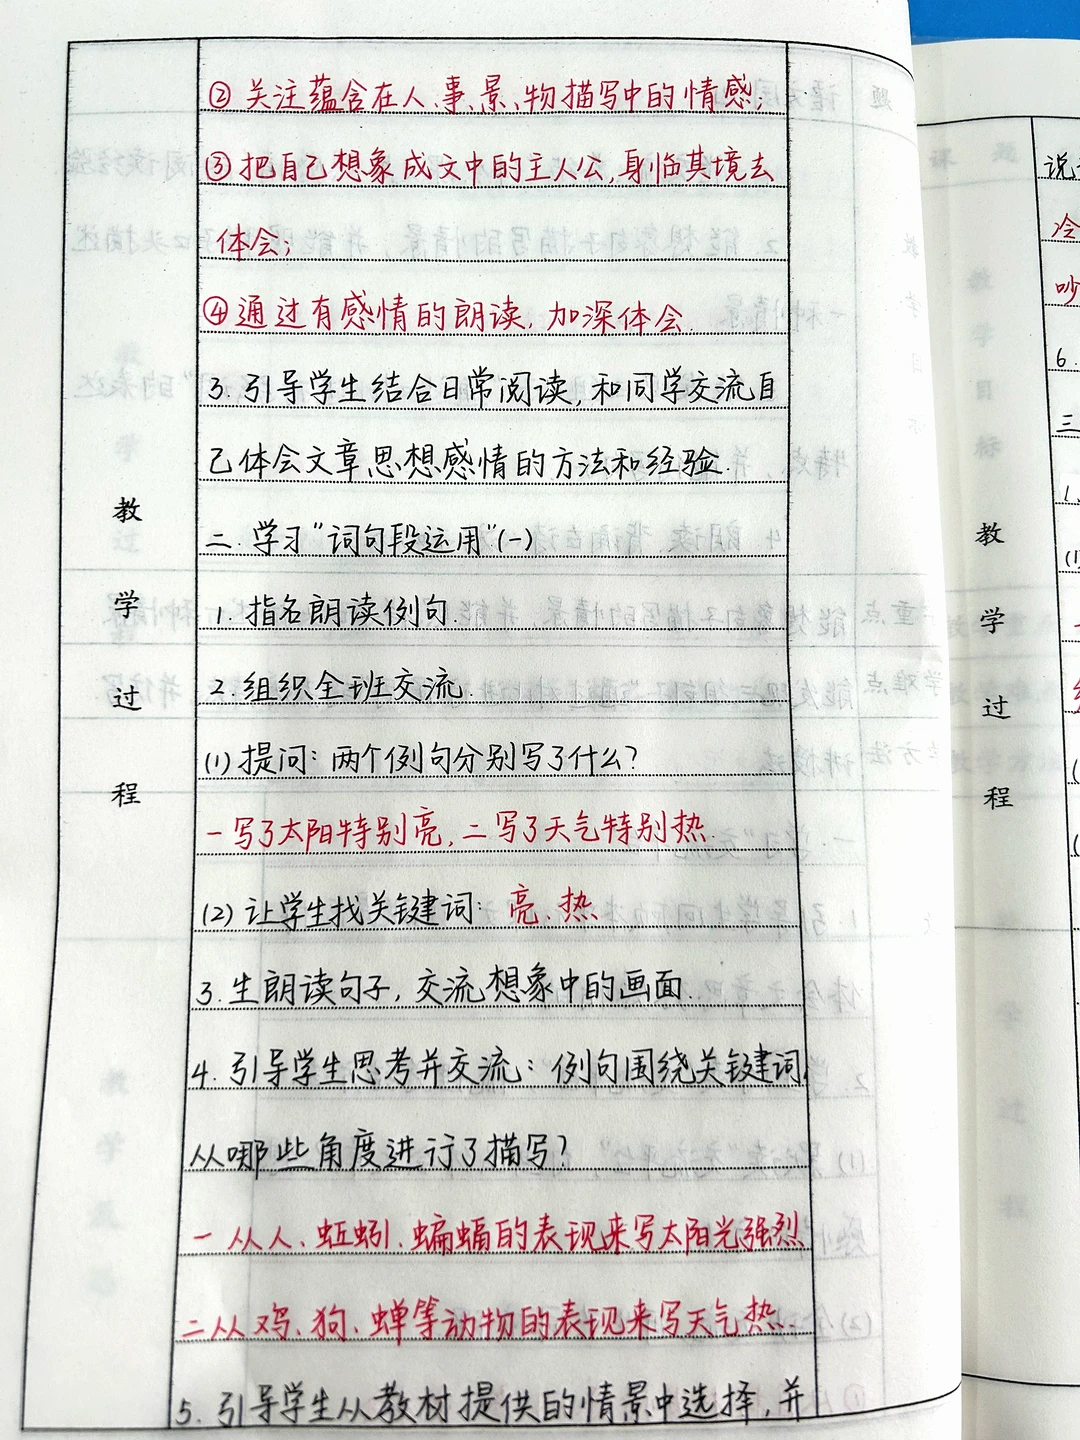 ②关注蕴含在人、事、景、物描写中的情感;
③把自己想象成文中的主人公,身临其境去
体会;
④通过有感情的朗读,加深体会.
3.引导学生结合日常阅读,和同学交流自
己体会文章思想感情的方法和经验.
二.学习“词句段运用”(一)
1.指名朗读例句.
2.组织全班交流.
(1)提问:两个例句分别写了什么?
一写了太阳特别亮,二写了天气特别热.
(2)让学生找关键词: 亮、热
3.生朗读句子,交流想象中的画面.
4.引导学生思考并交流:例句围绕关键词,
从哪些角度进行了描写?
一从人、蚯蚓、蝙蝠的表现来写太阳光强烈
二从鸡、狗、蝉等动物的表现来写天气热.
5.引导学生从教材提供的情景中选择,并
教
学
过
程
教
学
过
程
说
冷
吵
6.
三
1.